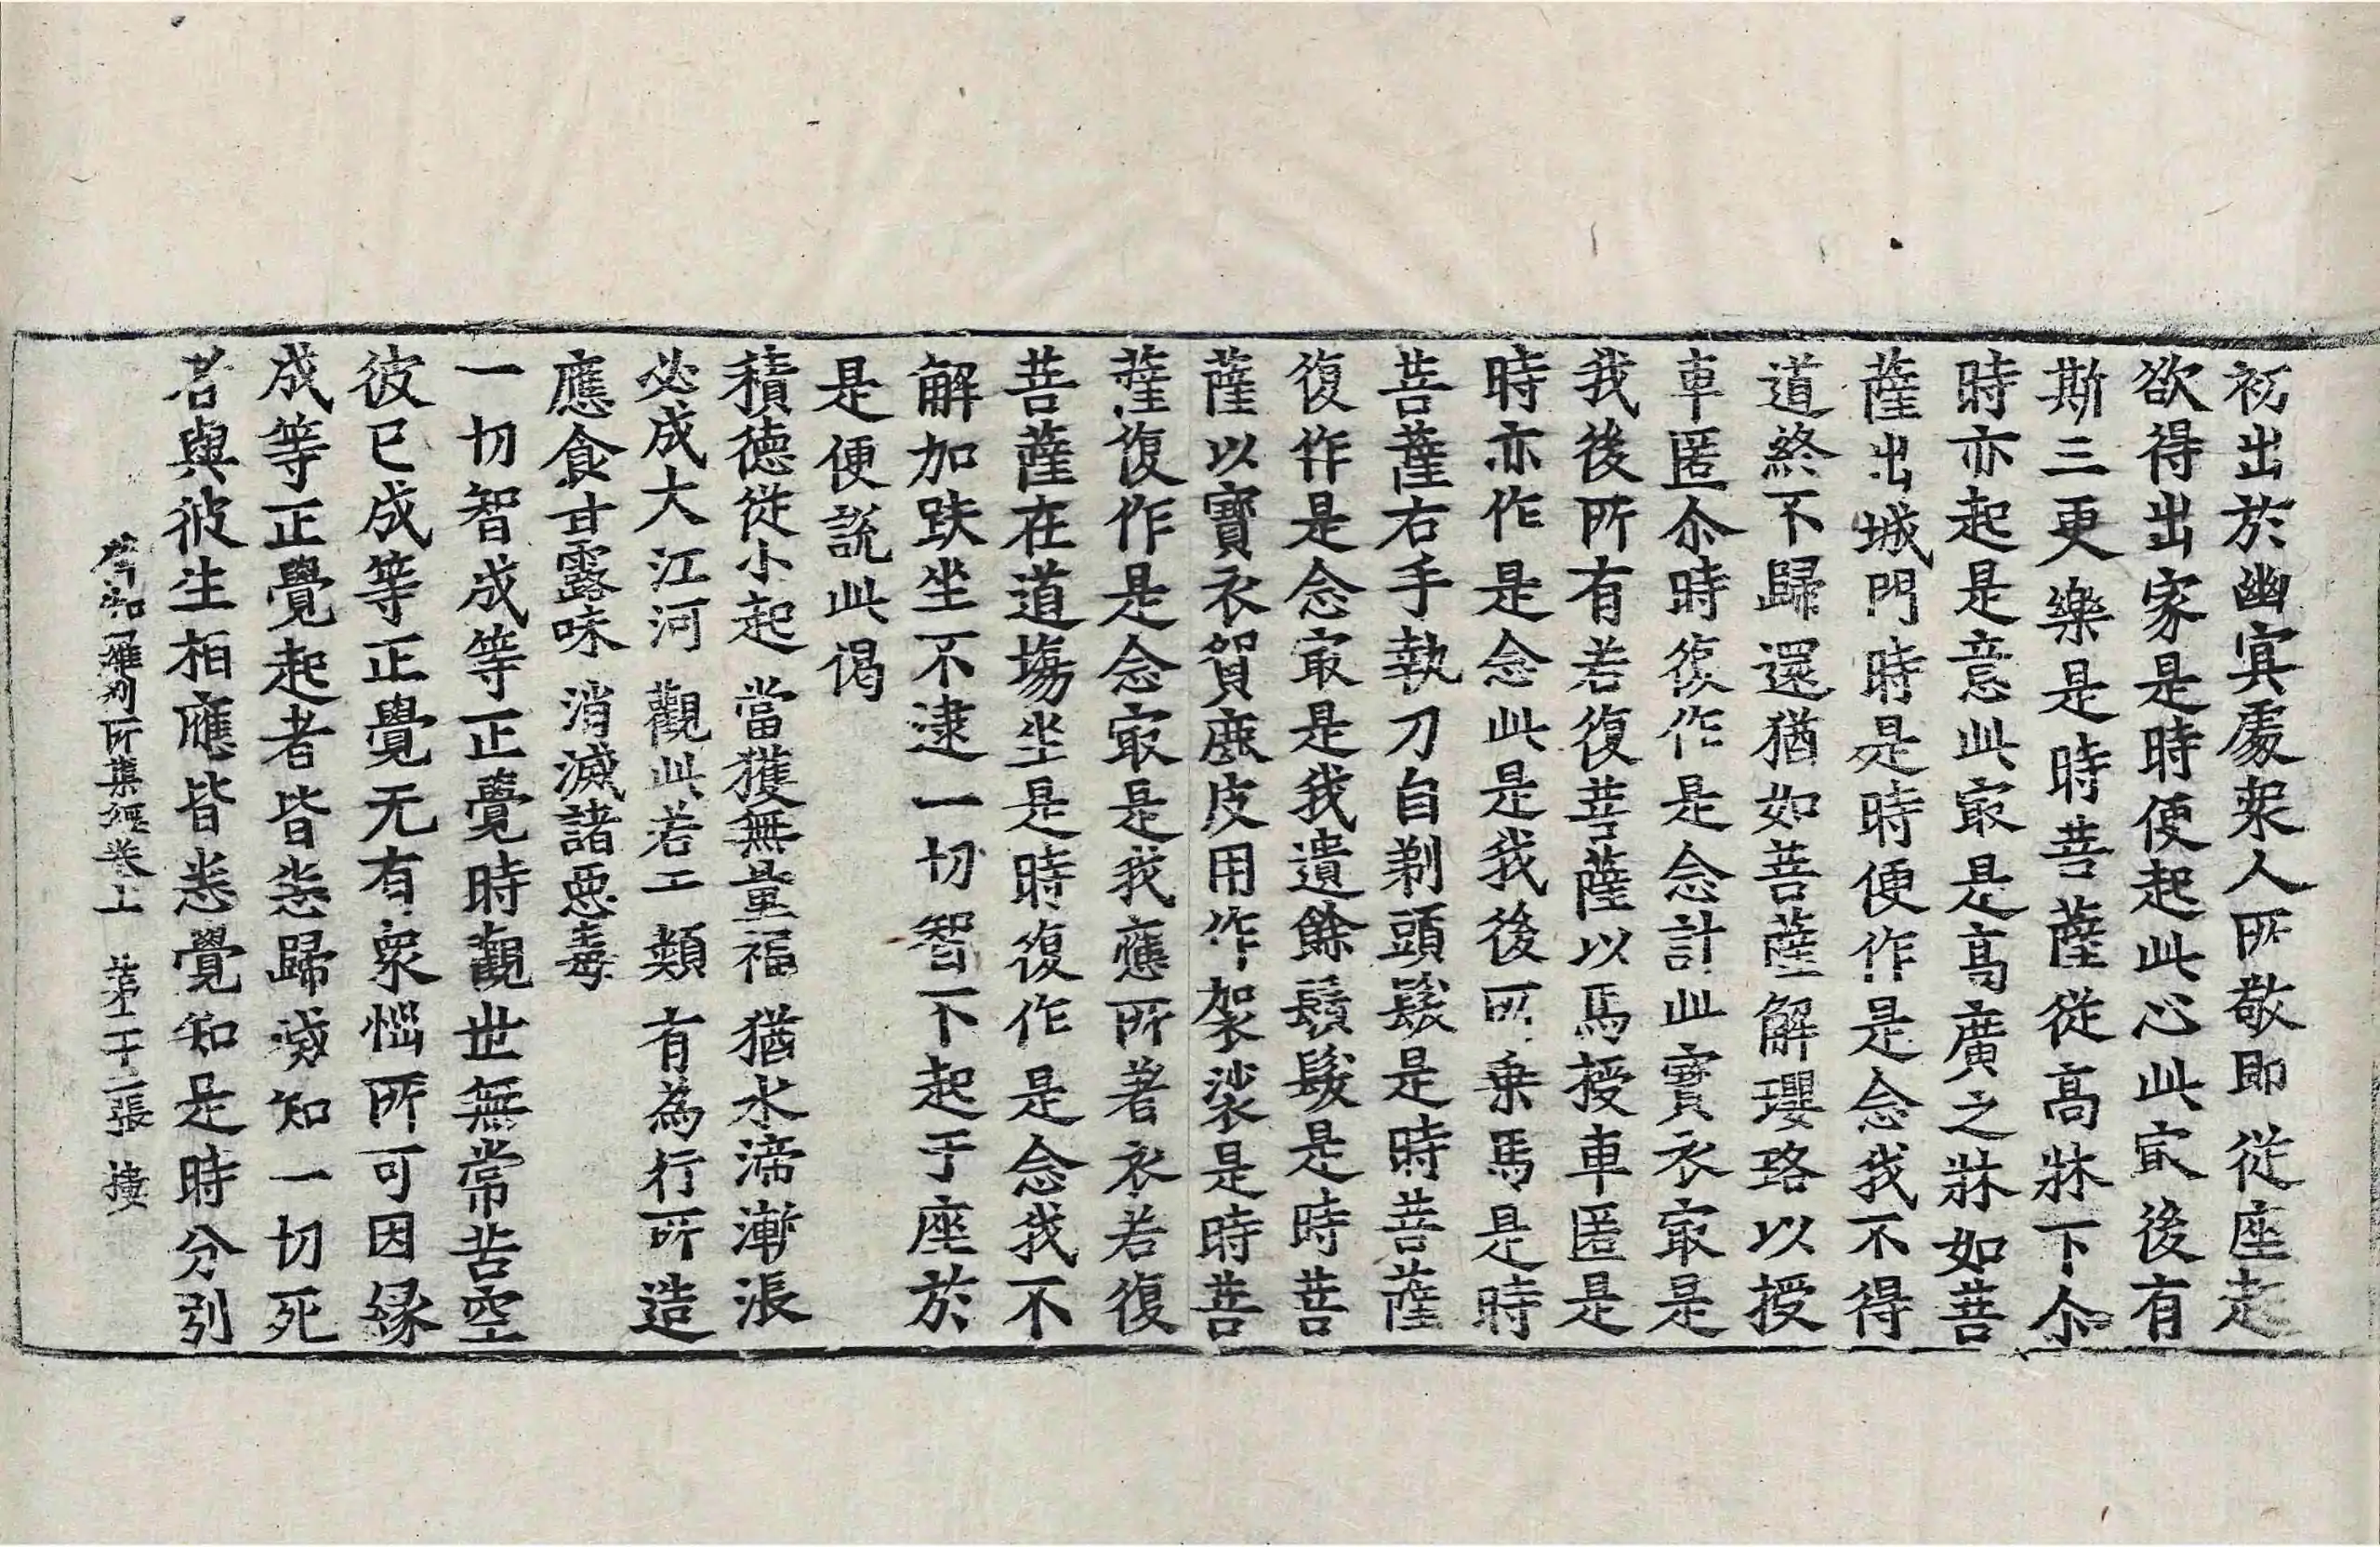 初出於幽冥處衆人所敬即從座起
欲得出家是時便起此心此㝡後有
斯三更樂是時菩薩從高牀下尒
時亦起是意此㝡是高廣之牀如菩
薩出城門時是時便作是念我不得
道終不歸還猶如菩薩解瓔珞以授
車匿尒時復作是念計此寶衣㝡是
我後所有若復菩薩以馬授車匿是
時亦作是念此是我後所乗馬是時
菩薩右手執刀自剃頭髮是時菩薩
復作是念㝡是我遺餘鬚髮是時菩
薩以寶衣貿鹿皮用作袈裟是時菩
薩復作是念㝡是我應所著衣若復
菩薩在道場坐是時復作是念我不
解加趺坐不逮一切智不起于座於
是便說此偈
積德從小起　當獲無量福　猶水渧漸漲
必成大江河　觀此若工類　有為行所造
應食甘露味　消滅諸惡毒
一切智成等正覺時觀世無常苦空
彼已成等正覺无有衆惱所可因緣
成等正覺起者皆悉歸滅知一切死
若與彼生相應皆悉覺知是時分別
僧伽羅刹所集經卷上　第二十二張　樓